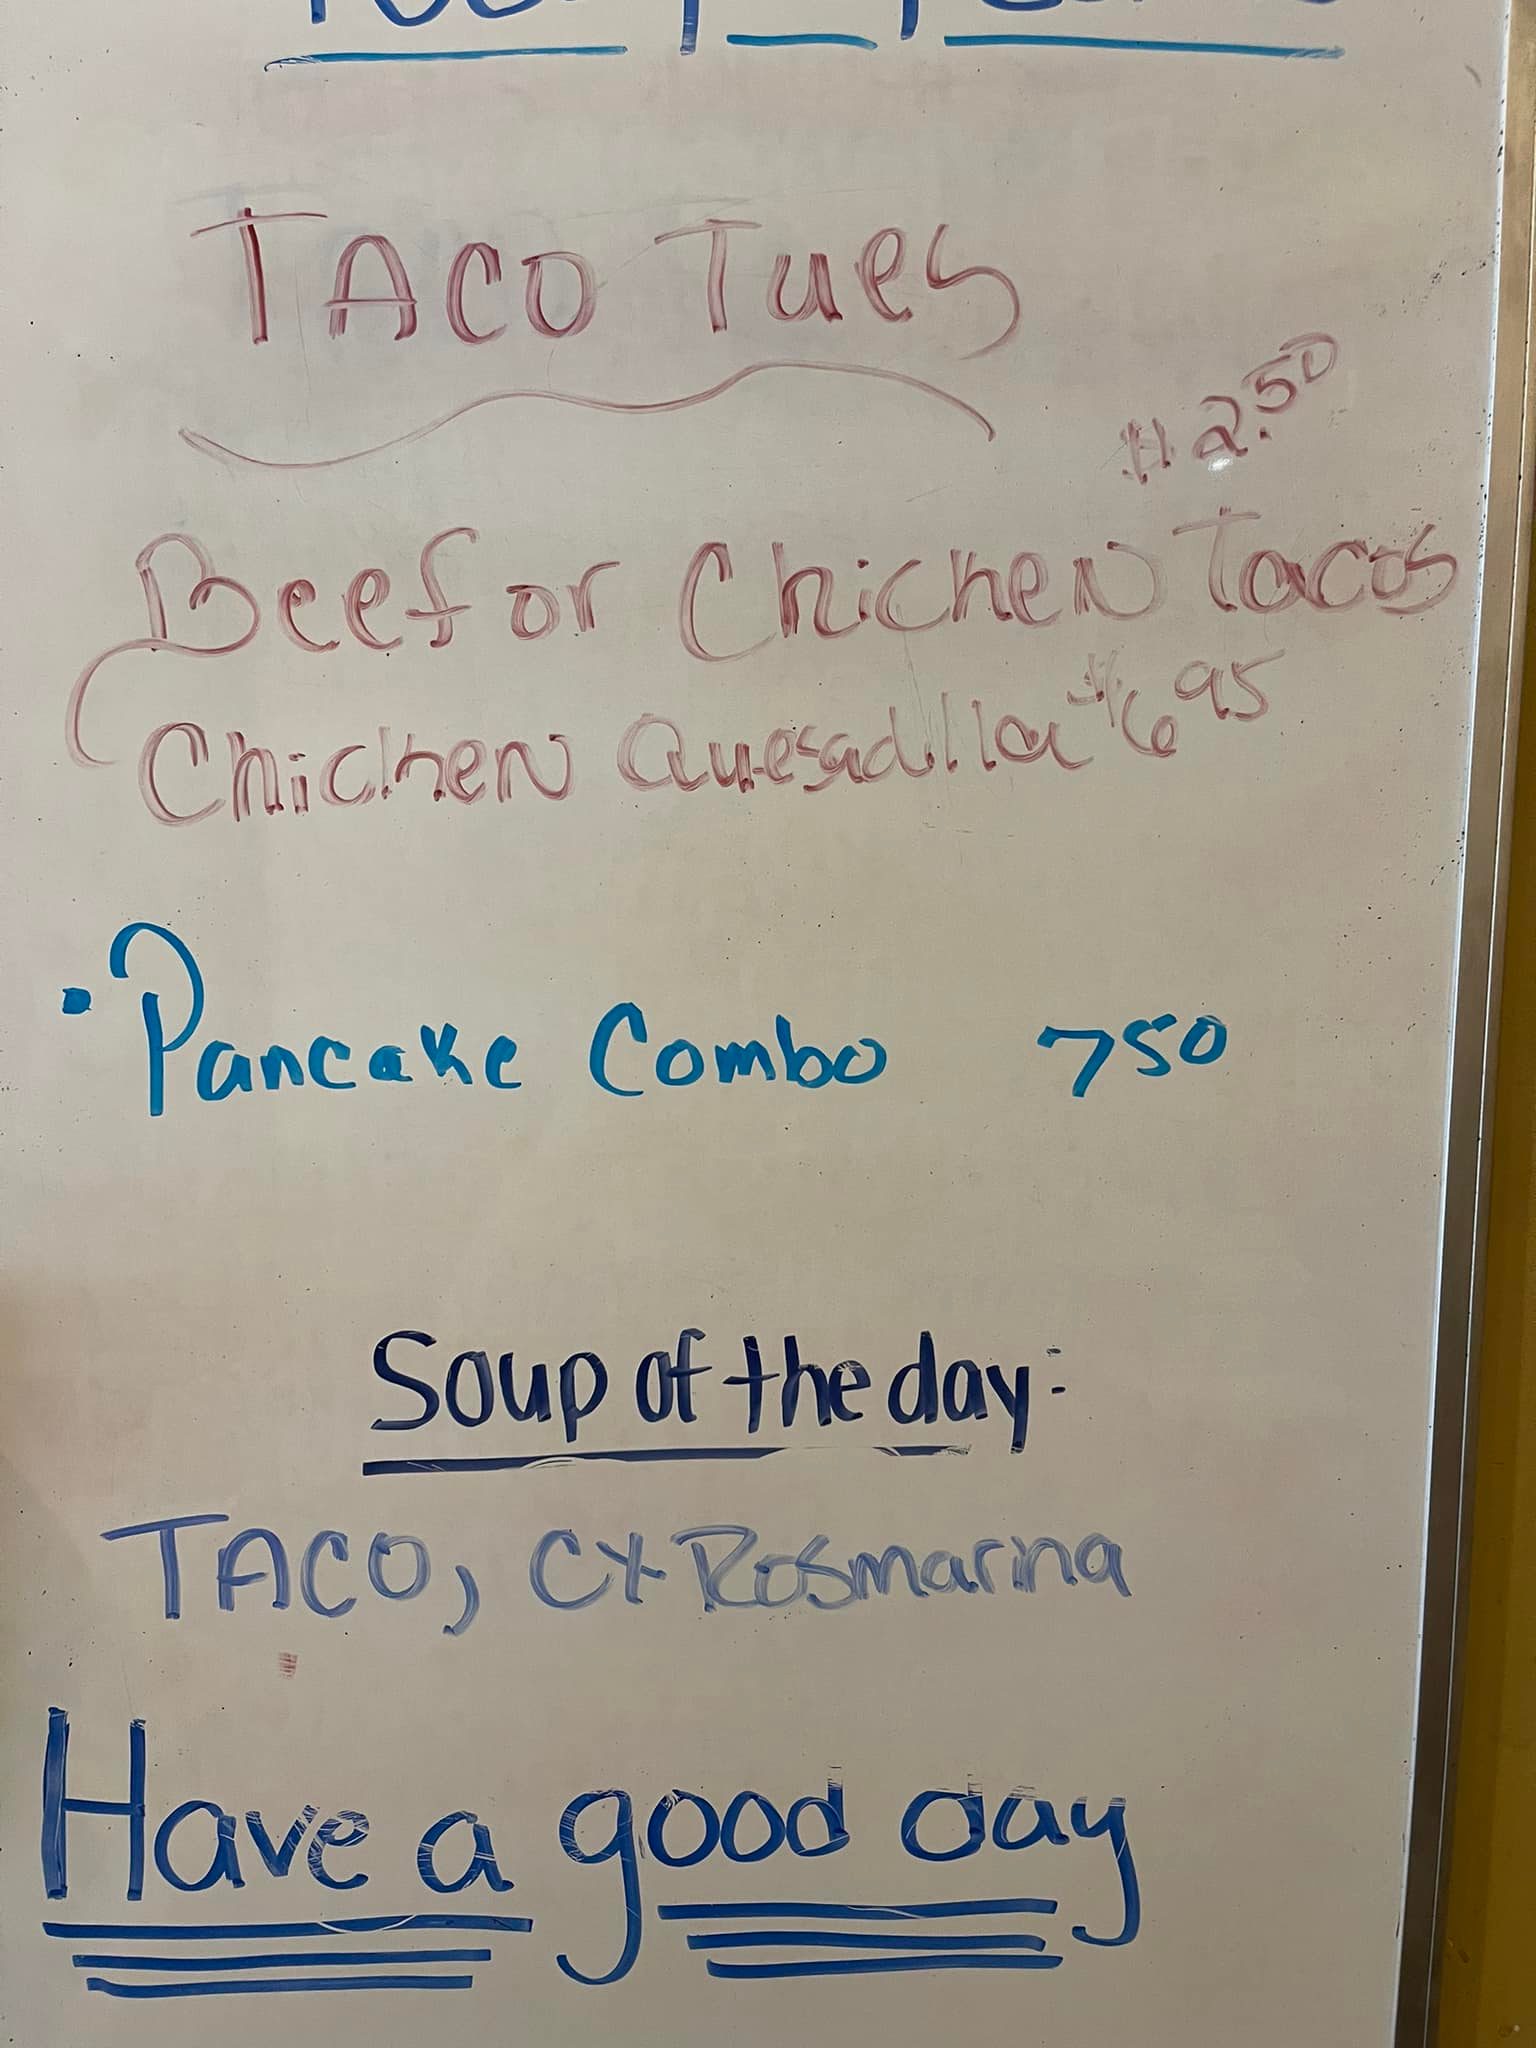 TACO Tues
$2.50
Beef or Chicken Tacos
Chicken Quesadilla $6 95
• Pancake Combo 750
Soup of the day:
TACO, CX Rosmarina
Have a good day